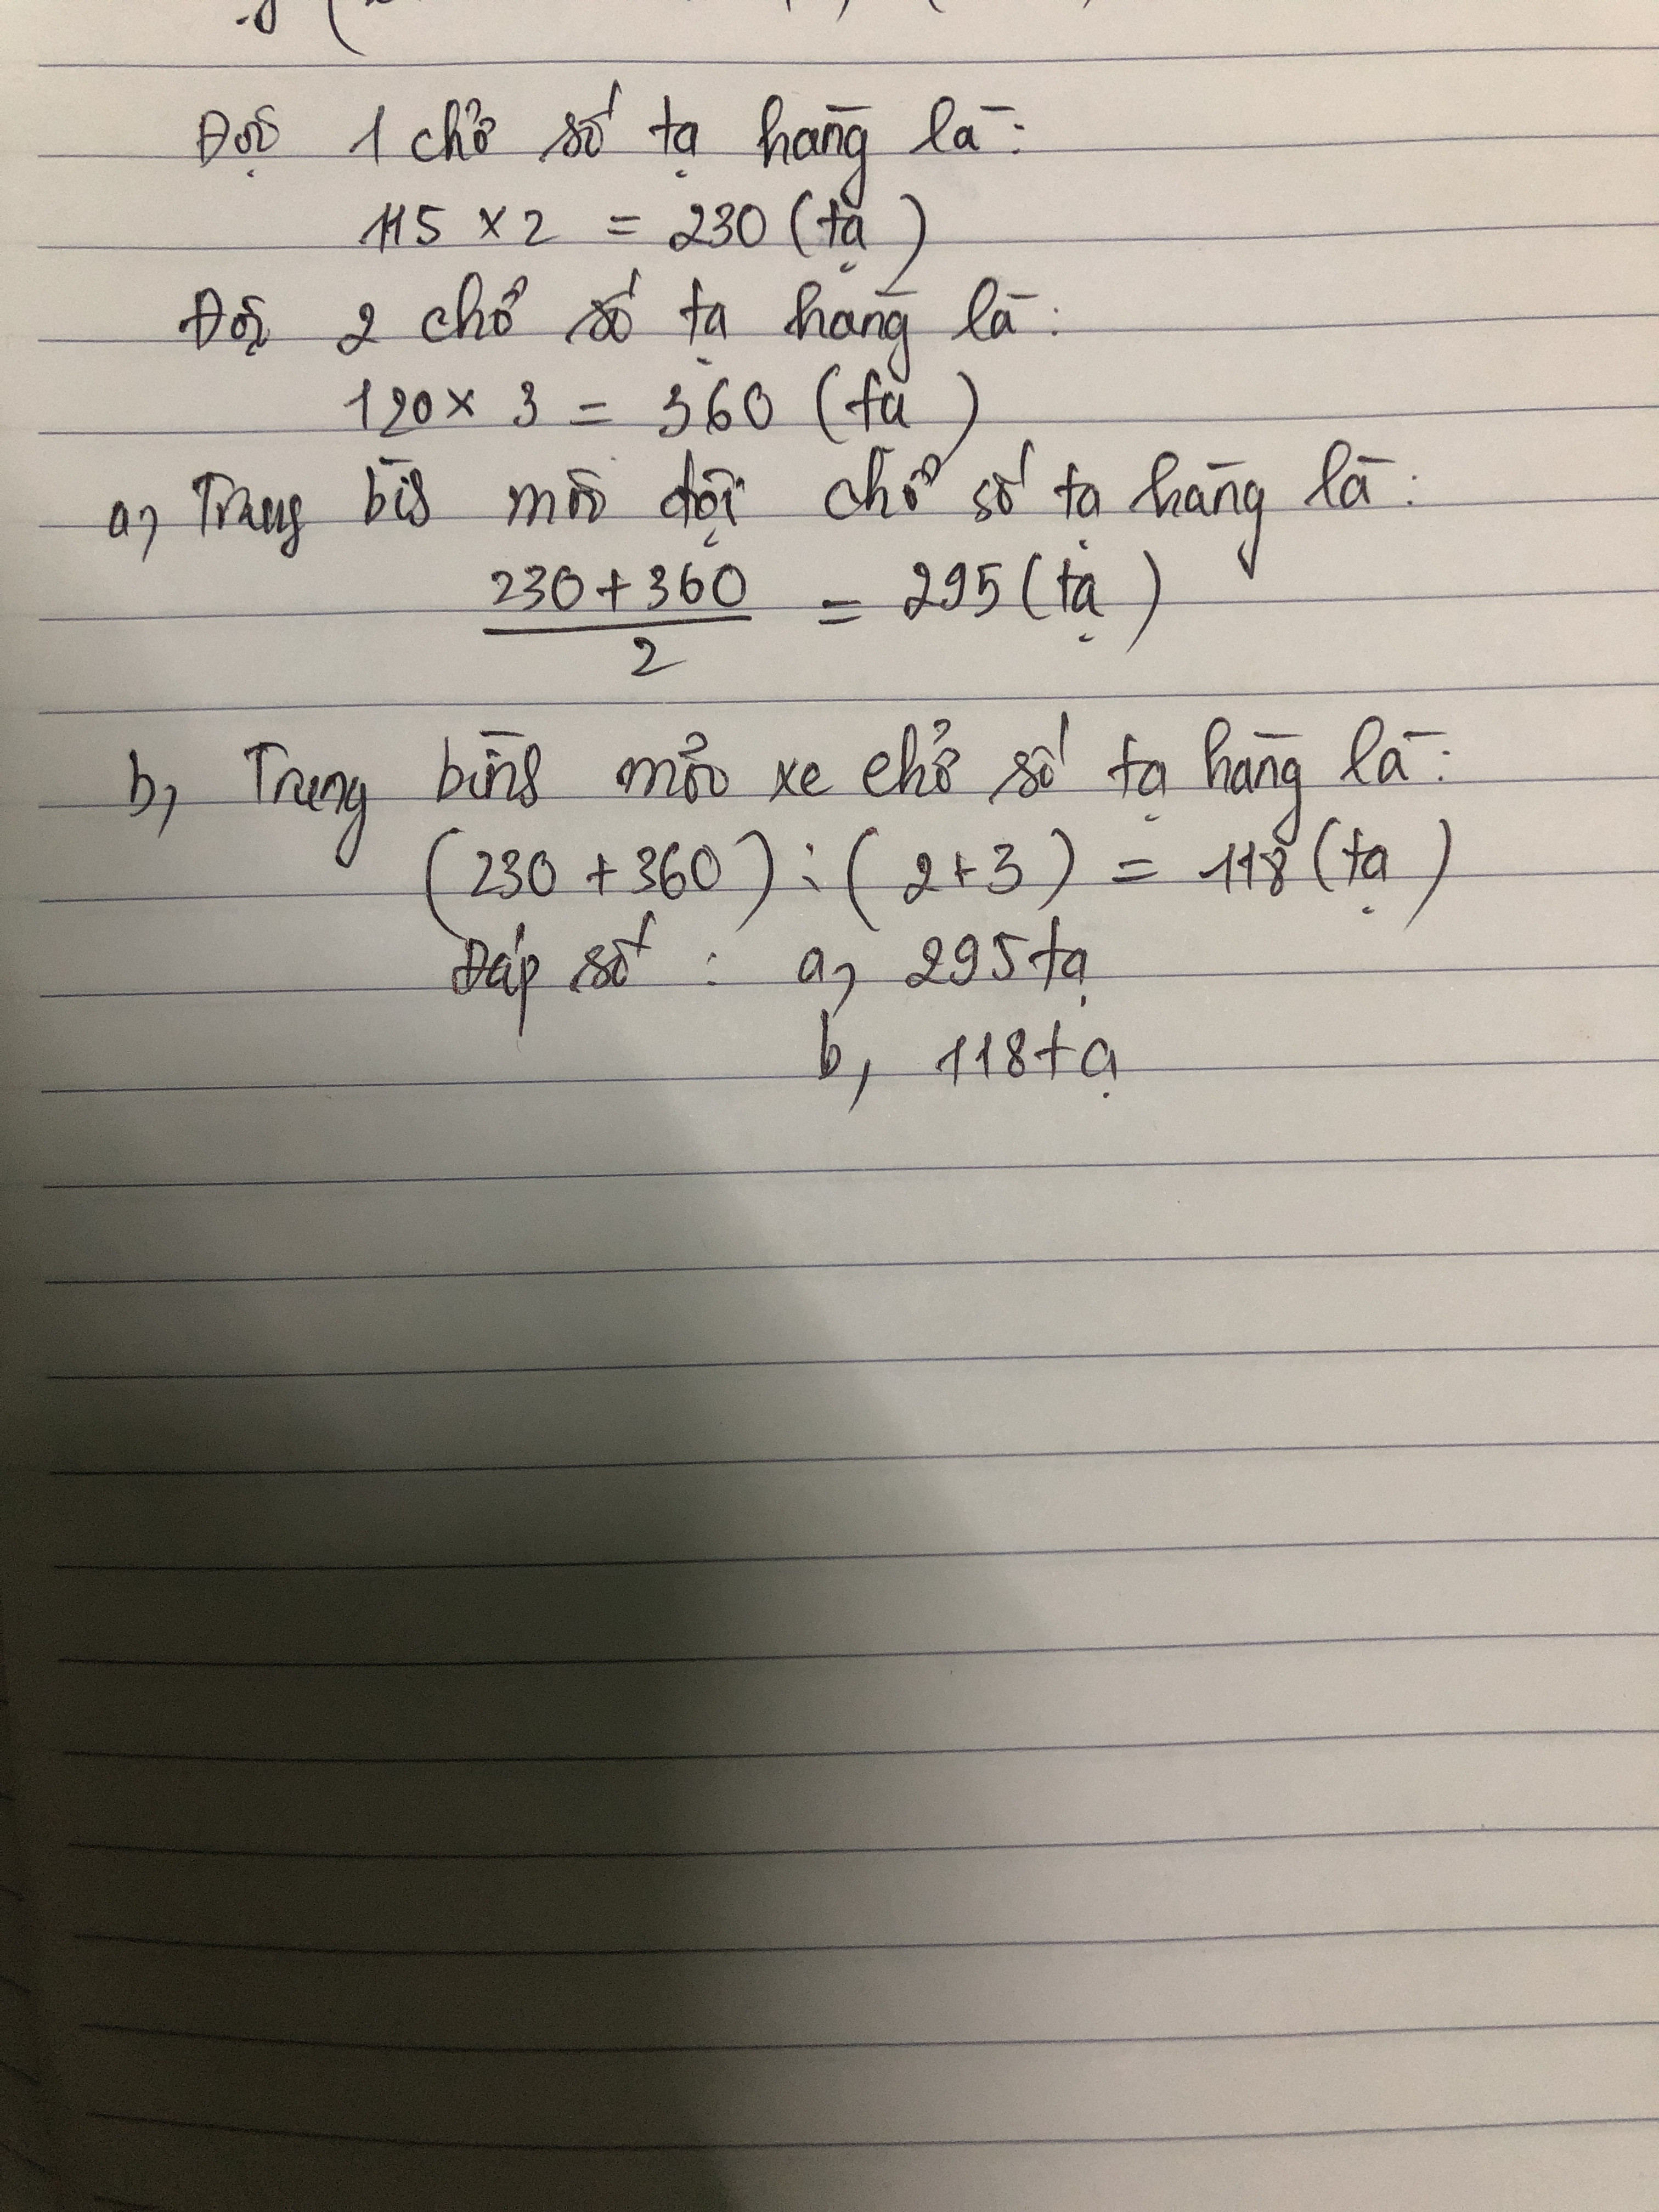 Đội 1 chở số tạ hàng là:
115 × 2 = 230 (tạ)
Đội 2 chở số tạ hàng là:
120 × 3 = 360 (tạ)
a, Trung bình mỗi đội chở số tạ hàng là:
230 + 360
———— = 295 (tạ)
2
b, Trung bình mỗi xe chở số tạ hàng là:
(230 + 360) : (2+3) = 118 (tạ)
Đáp số : a, 295 tạ
b, 118 tạ